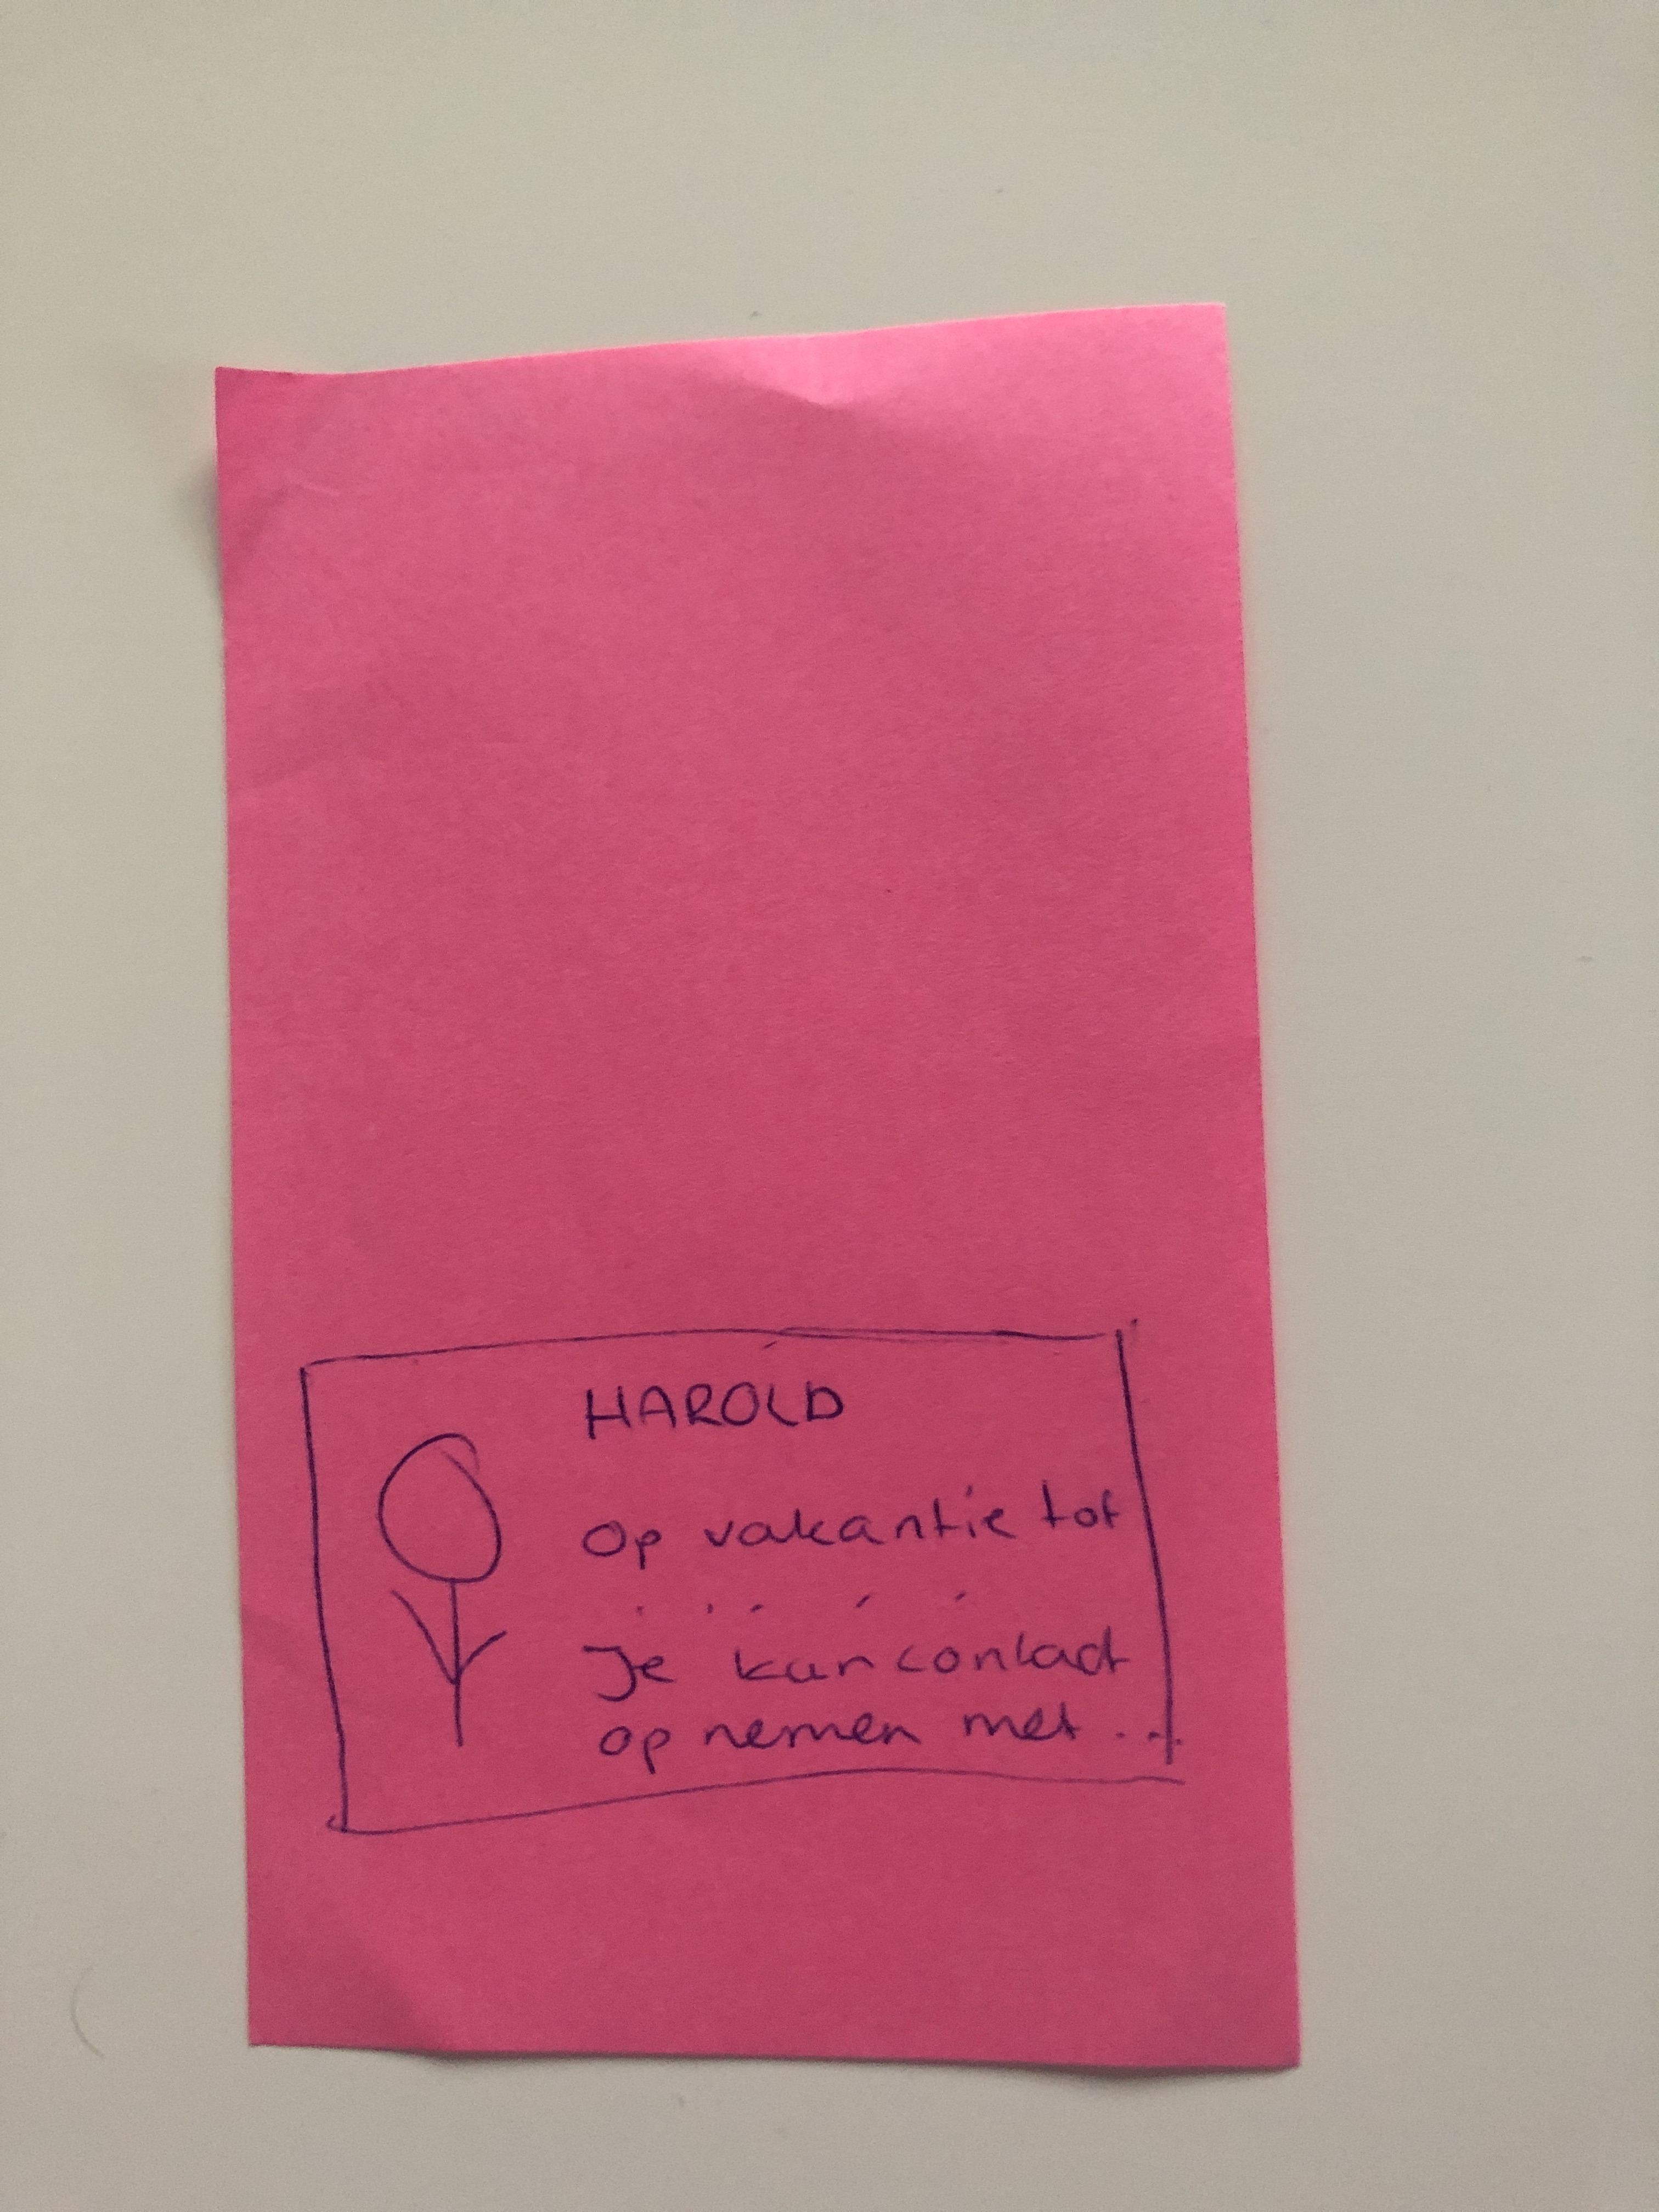 HAROLD
Op vakantie tot
. . . . .
Je kan contact
op nemen met ...